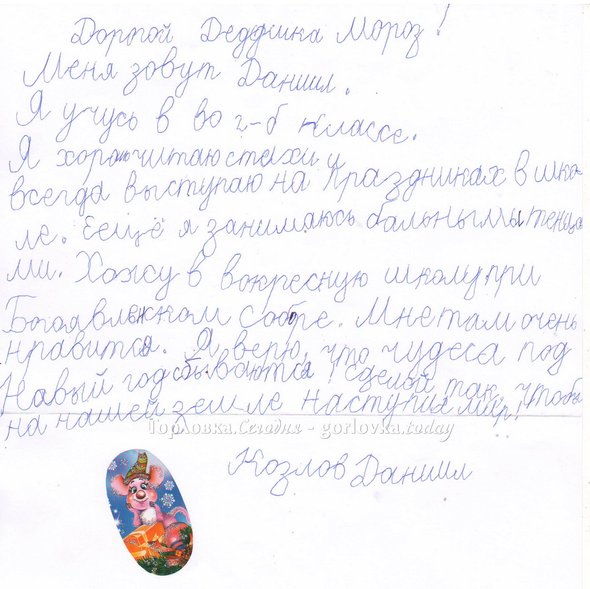 Дорогой Деддшка Мороз!
Меня зовут Даниил.
Я учусь в во 2-б классе.
Я хорошо читаю стихи и
всегда выступаю на праздниках в шко-
ле. Еещё я занимаюсь бальными тенца
ми. Хожу в вокресную школу при
Богоявленском соборе. Мне там очень
нравится. Я верю, что чудеса под
Навый год сбываются! Сделай так, чтобы
на нашей земле наступил мир!
Горловка.Сегодня - gorlovka.today
Козлов Даниил